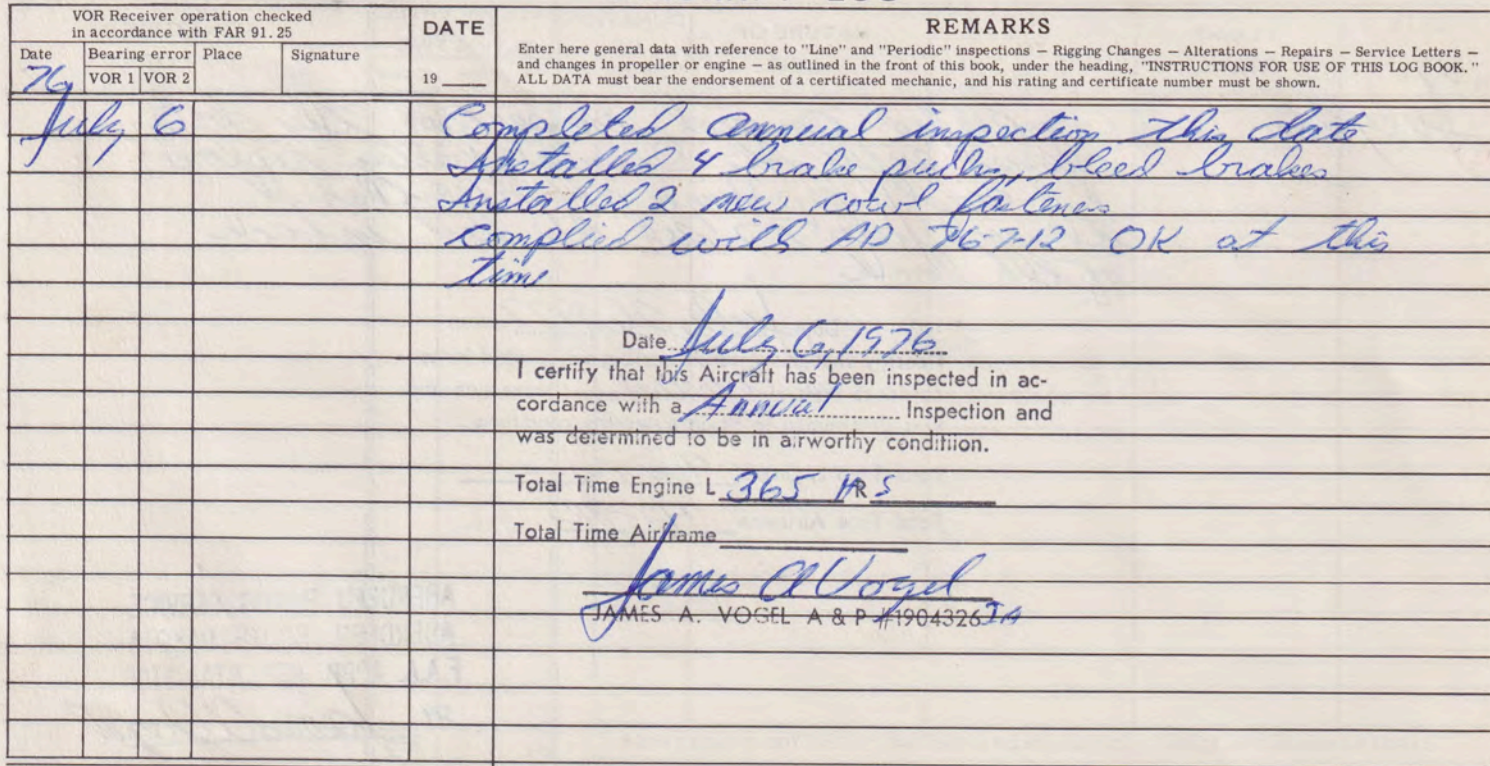 VOR Receiver operation checked
in accordance with FAR 91.25
Date Bearing error Place Signature
VOR 1 VOR 2
76
DATE
19
REMARKS
Enter here general data with reference to "Line" and "Periodic" inspections — Rigging Changes — Alterations — Repairs — Service Letters —
and changes in propeller or engine — as outlined in the front of this book, under the heading, "INSTRUCTIONS FOR USE OF THIS LOG BOOK."
ALL DATA must bear the endorsement of a certificated mechanic, and his rating and certificate number must be shown.
July 6 Completed annual inspection this date
Installed 4 brake bleed brakes
Installed 2 new cowl fasteners
complied with AD 76-7-12 OK at this
time
Date July 6, 1976
I certify that this Aircraft has been inspected in ac-
cordance with a Annual Inspection and
was determined to be in airworthy condittion.
Total Time Engine L 365 HRS
Total Time Airframe
James A Vogel
JAMES A. VOGEL A & P #1904326 IA